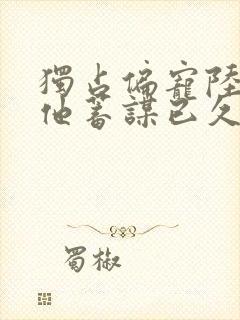 獨占偏寵陸
他蓄謀已久
蜀椒